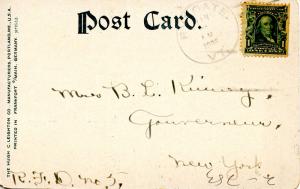 Post Card.
THE HUGH C. LEIGHTON CO., MANUFACTURERS, PORTLAND, ME., U.S.A.
PRINTED IN FRANKFORT A/MAIN, GERMANY.
Mrs B. L. Kinney,
Gouverneur,
New York
R.F.D. no 5,